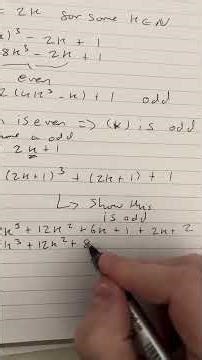 = 2k for some k∈N
)³ - 2k + 1
8k³ - 2k + 1
even
2(4k³ - k) + 1 odd
n is even => (*) is odd
n odd
2k + 1
(2k+1)³ + (2k+1) + 1
↳ show this
is odd
k³ + 12k² + 6k + 1 + 2k + 2
k³ + 12k² + 8